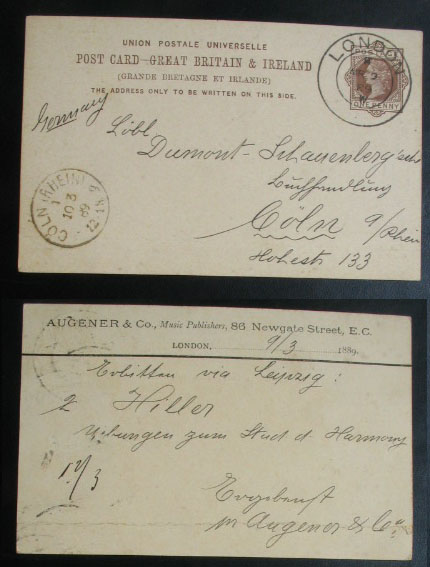 UNION POSTALE UNIVERSELLE
POST CARD—GREAT BRITAIN & IRELAND
(GRANDE BRETAGNE ET IRLANDE)
THE ADDRESS ONLY TO BE WRITTEN ON THIS SIDE.
POSTAGE
ONE PENNY
LONDON
Germany
Löbl
Dumont-Schauenberg'sche
Buchhandlung
Cöln a/Rhein
Hohestr 133
CÖLN (RHEIN)
10 3
89
AUGENER & Co., Music Publishers, 86 Newgate Street, E.C.
LONDON, 9/3 1889.
Erbitten via Leipzig:
2 Hiller
Uebungen zum Stud d. Harmony
Ergebenst
Augener & Co